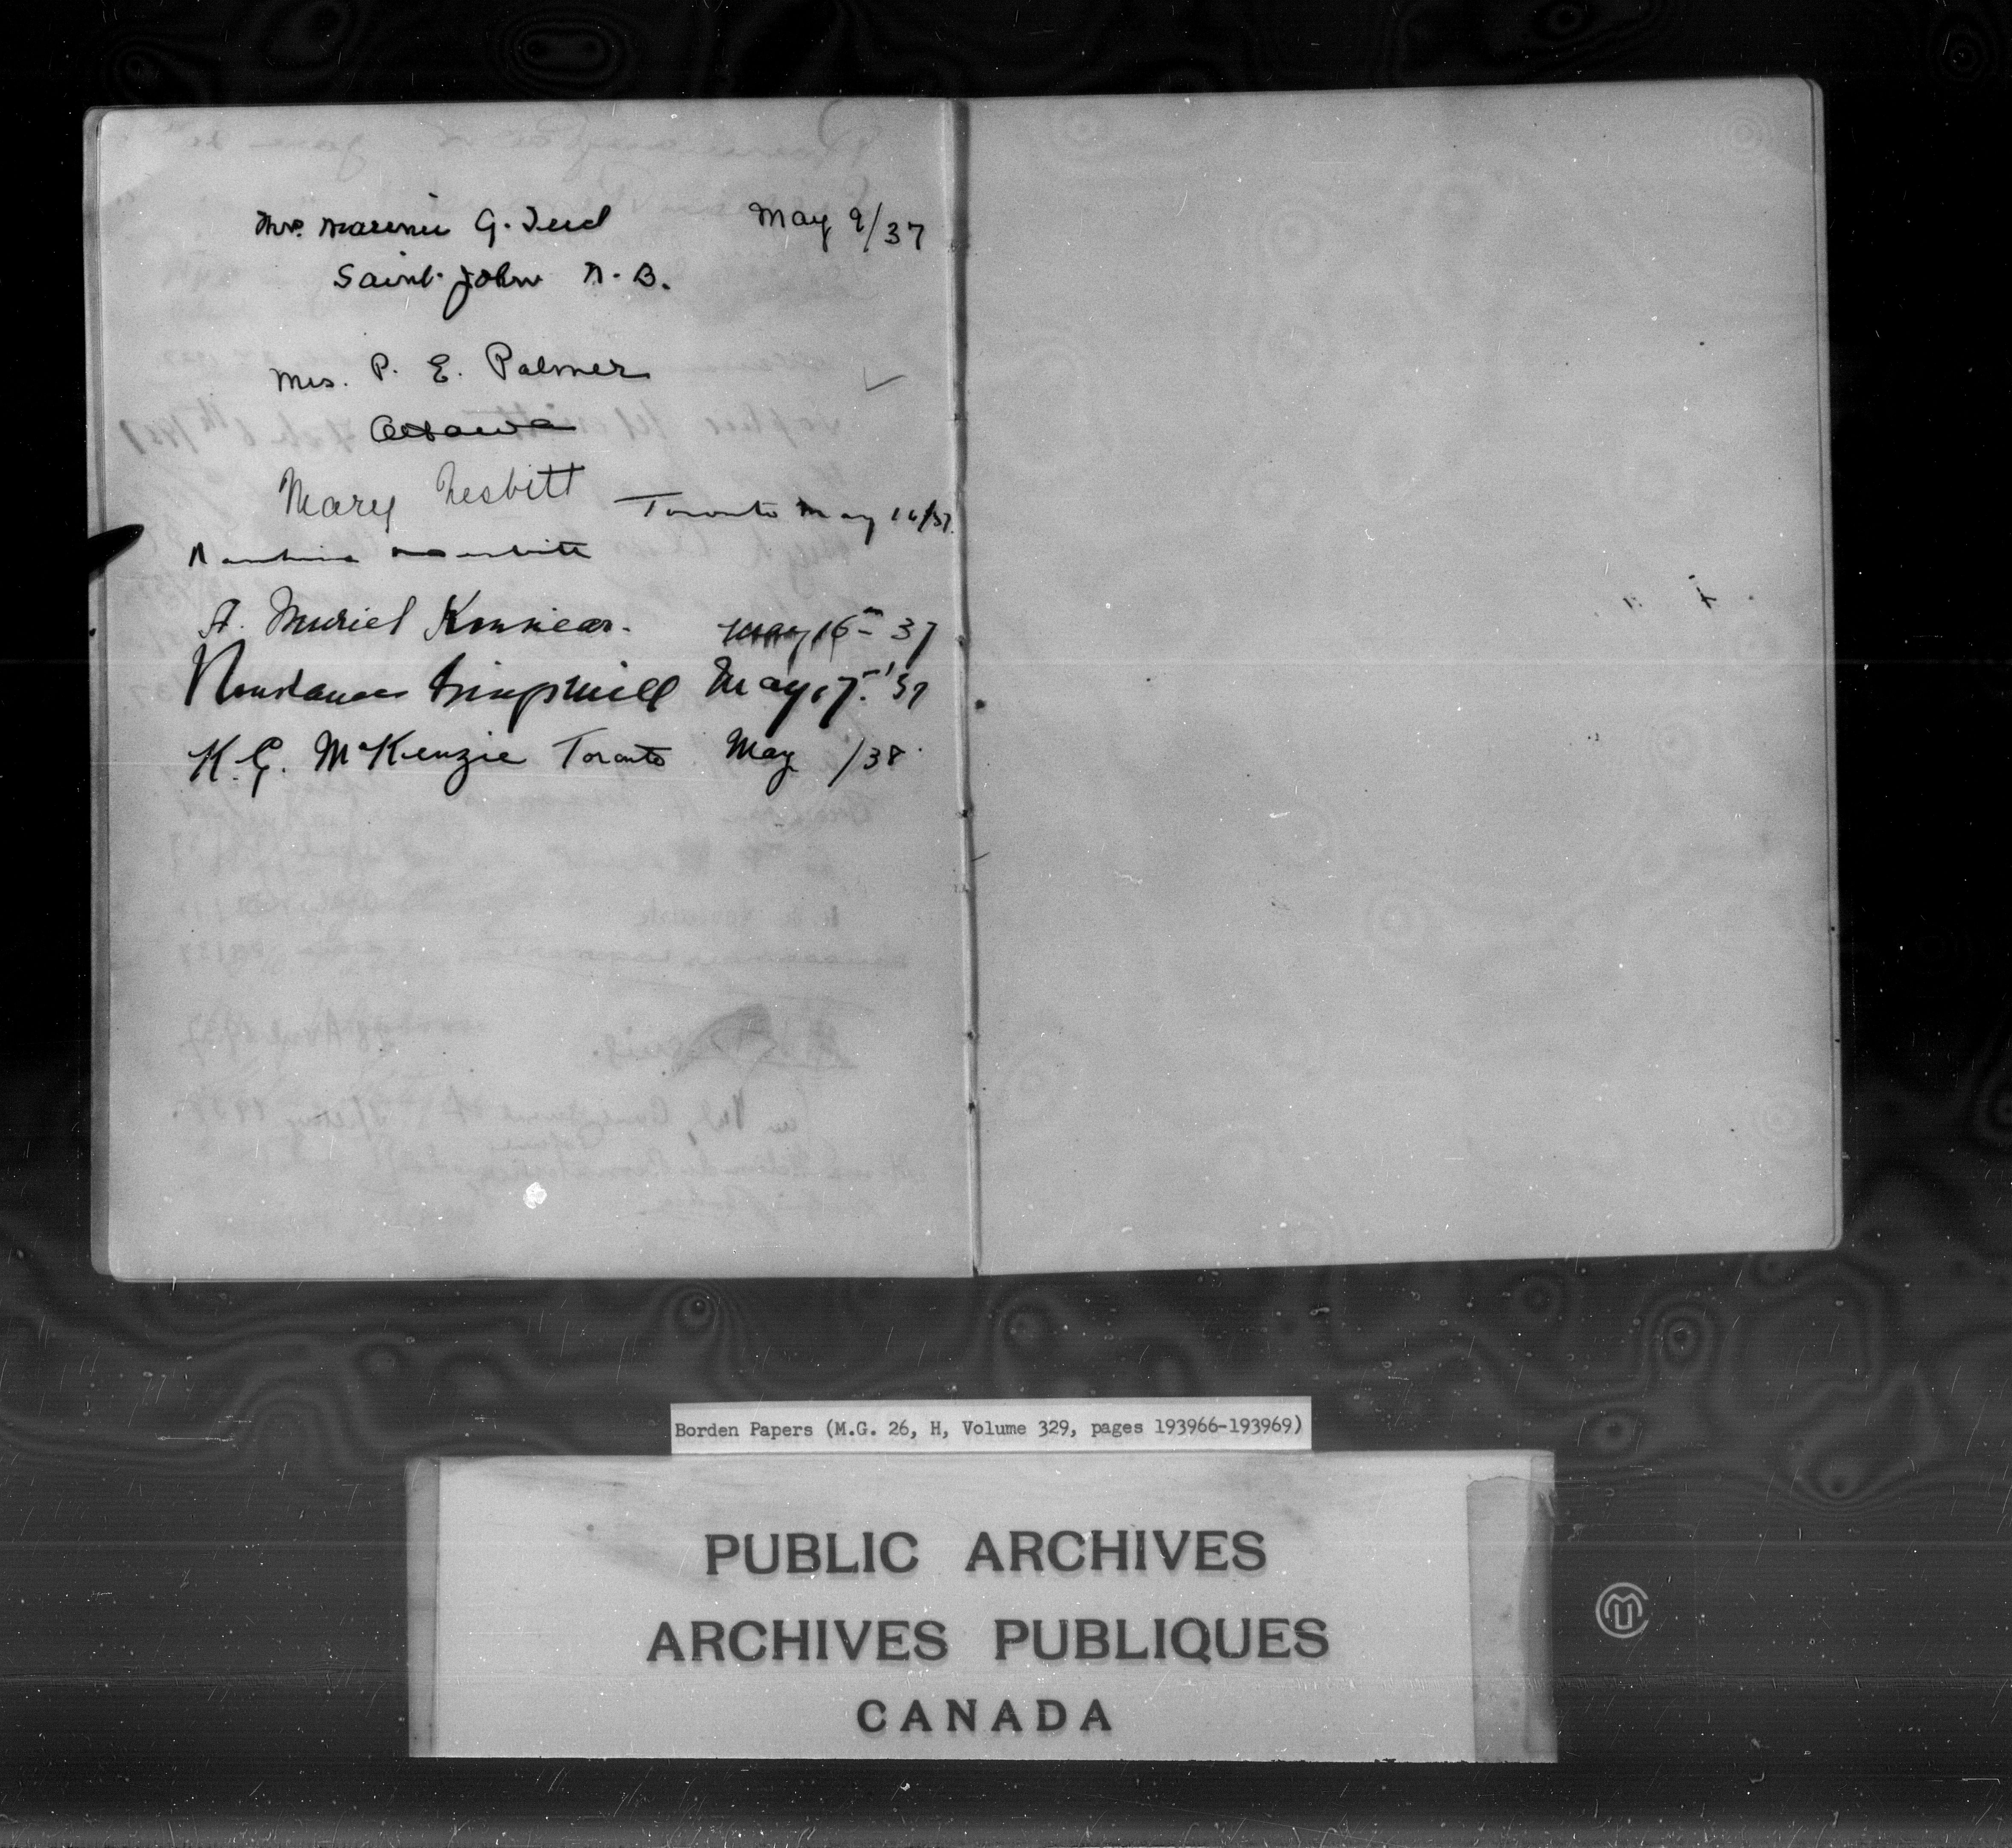 Mrs. G. Teed May 9/37
Saint John N. B.
Mrs. P. E. Palmer
Ottawa
Mary Nesbitt Toronto May 16/37.
A. Muriel Kinnear. May 16 - 37
Constance Kingsmill May 17. '37
K. G. McKenzie Toronto May /38.
Borden Papers (M.G. 26, H, Volume 329, pages 193966-193969)
PUBLIC ARCHIVES
ARCHIVES PUBLIQUES
CANADA